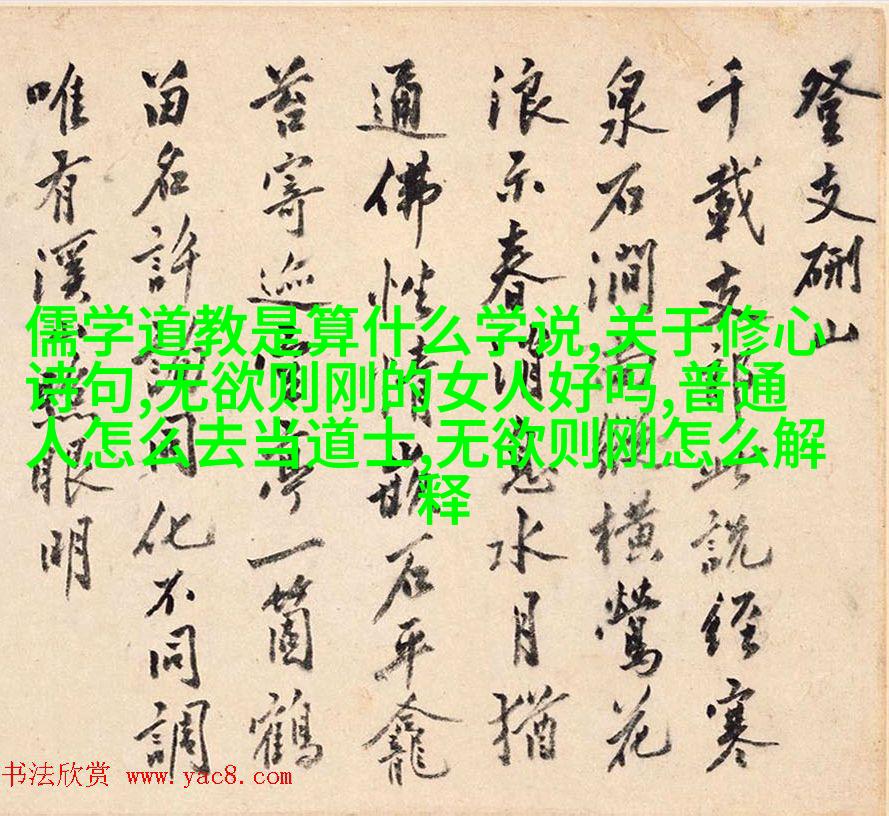 登支硎山
千載支郎此說經寒
泉石澗縱橫鶯花
浪示春消息水月猶
通佛性情嵌石平龕
苔寄迹亭一箇鶴
留名許同化不同調
唯有溪眼明
儒学道教是算什么学说,关于修心
诗句,无欲则刚的女人好吗,普通
人怎么去当道士,无欲则刚怎么解
释
书法欣赏 www.yac8.com